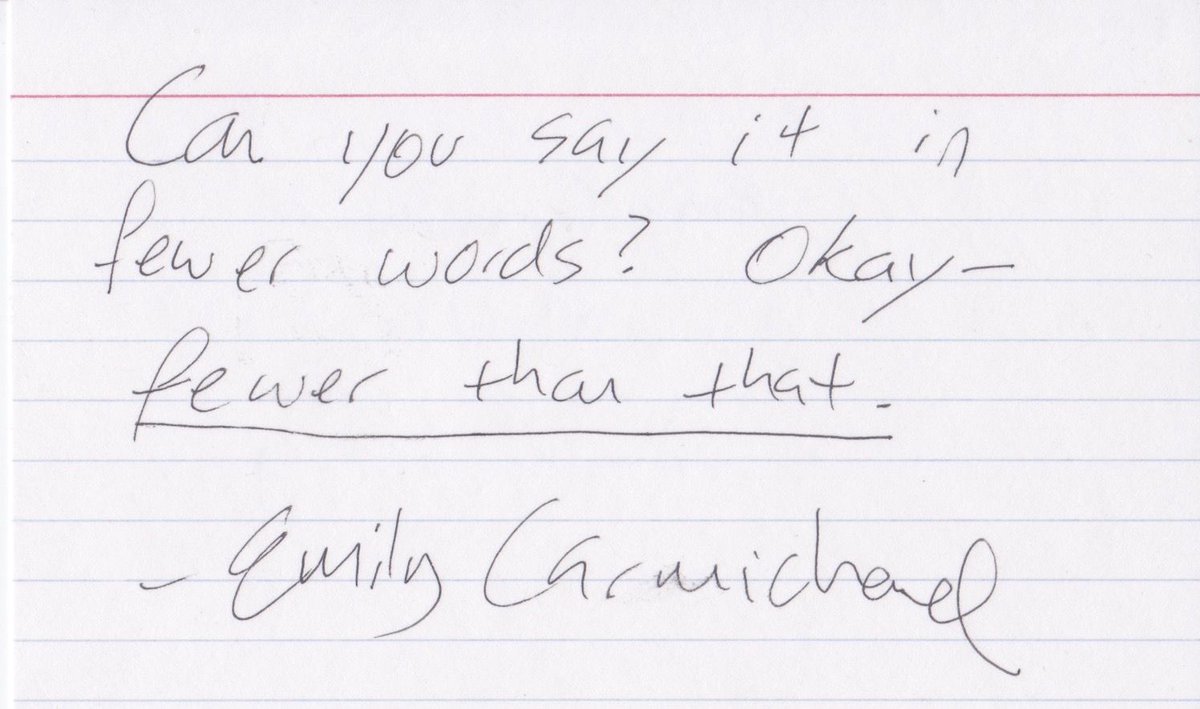 Can you say it in
fewer words? Okay—
fewer than that.
- Emily Carmichael